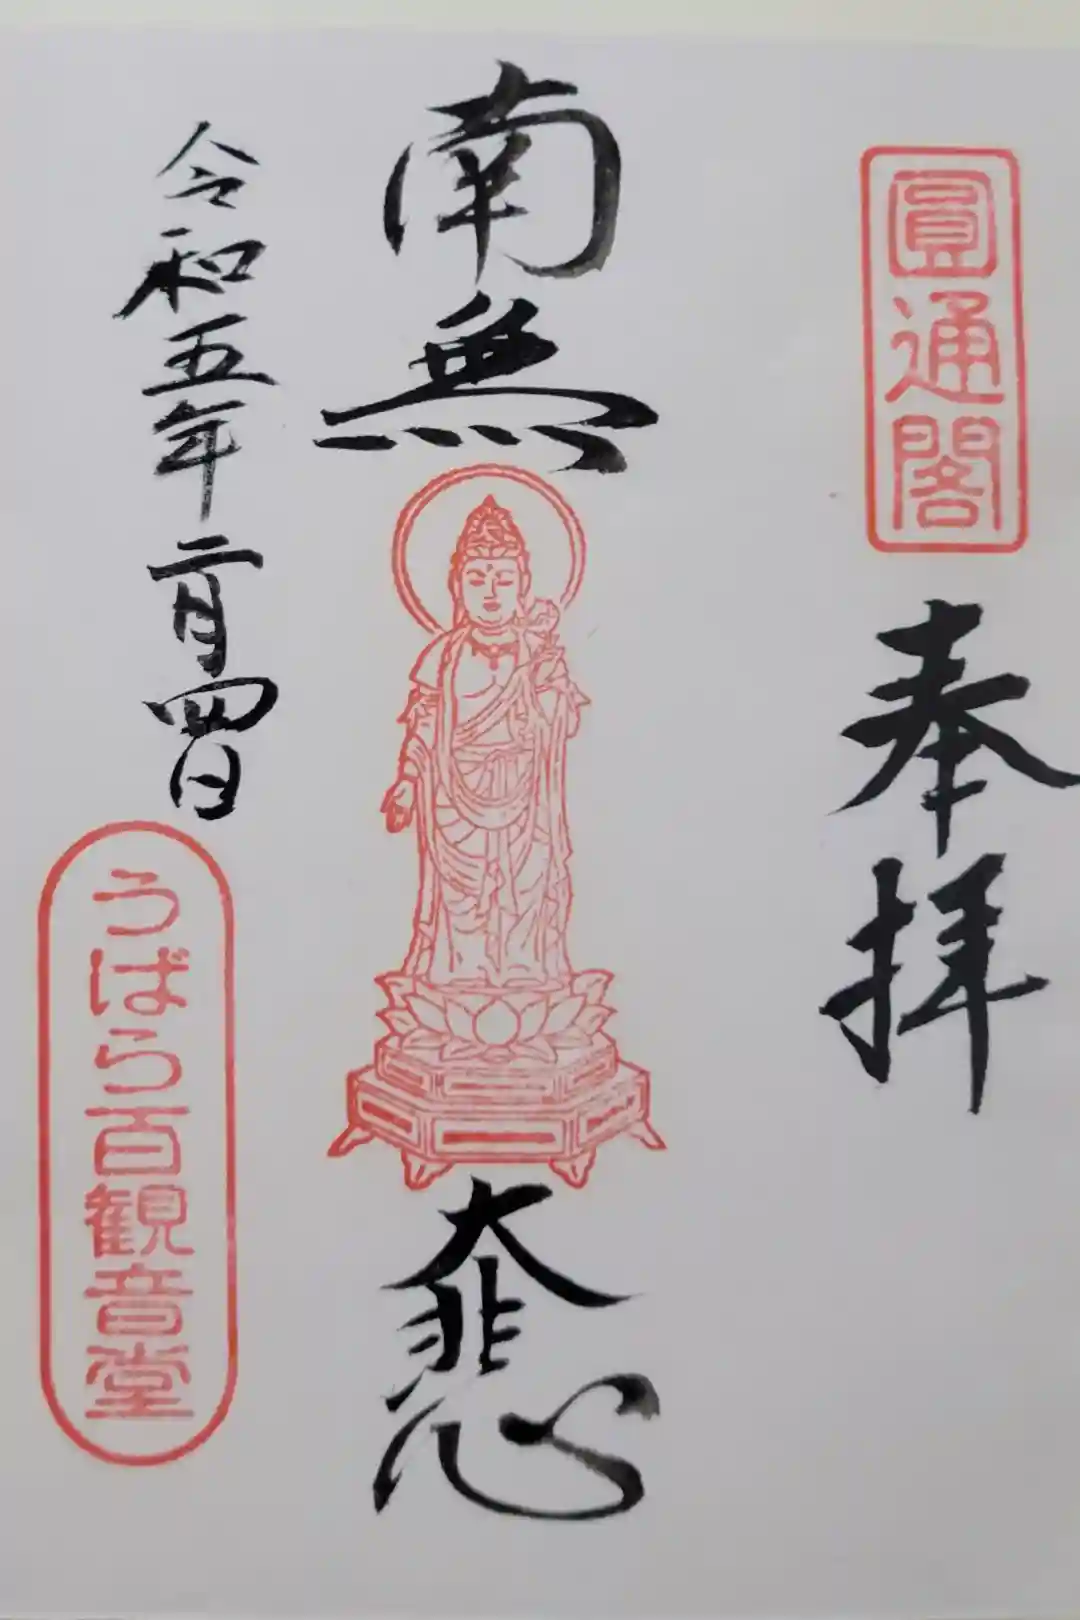 圓通閣
奉拝
南無
大悲
令和五年二月四日
うばら百観音堂